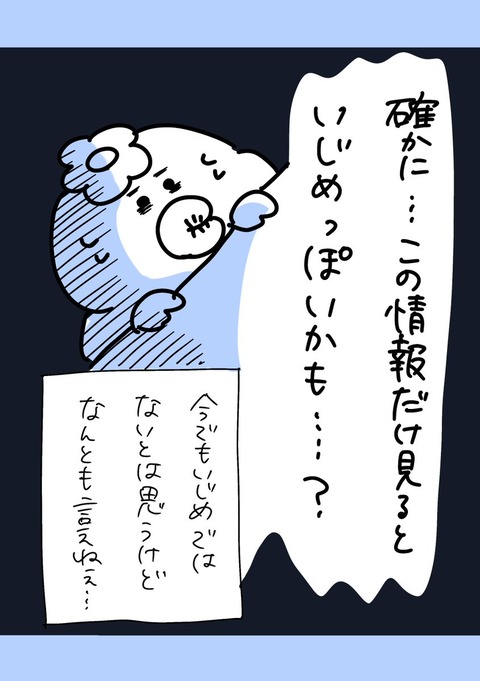 確かに…この情報だけ見ると
いじめっぽいかも……?
今でもいじめでは
ないとは思うけど
なんとも言えねぇ…